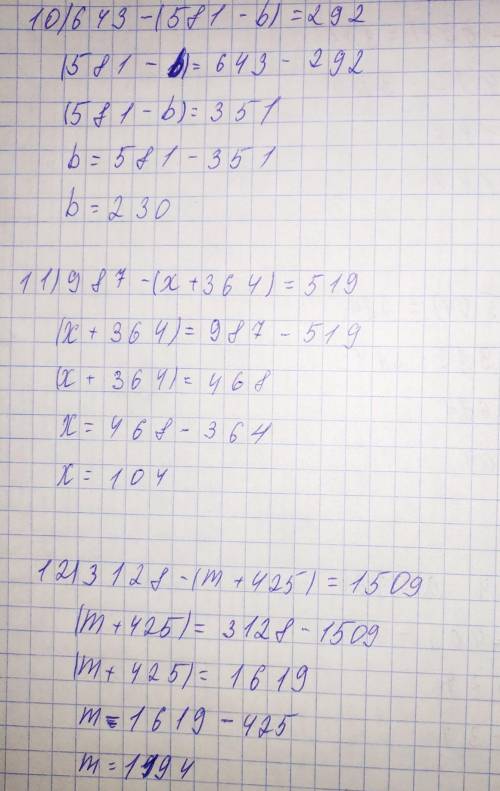 10) 643 - (581 - b) = 292
(581 - b) = 643 - 292
(581 - b) = 351
b = 581 - 351
b = 230
11) 987 - (x + 364) = 519
(x + 364) = 987 - 519
(x + 364) = 468
x = 468 - 364
x = 104
12) 3128 - (m + 425) = 1509
(m + 425) = 3128 - 1509
(m + 425) = 1619
m = 1619 - 425
m = 1194